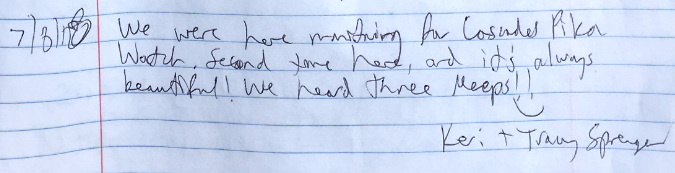 7/8/18 We were here monitoring for Cascades Pika
Watch. Second time here, and it's always
beautiful! We heard three Meeps!!
Keri + Tracy Sprenger